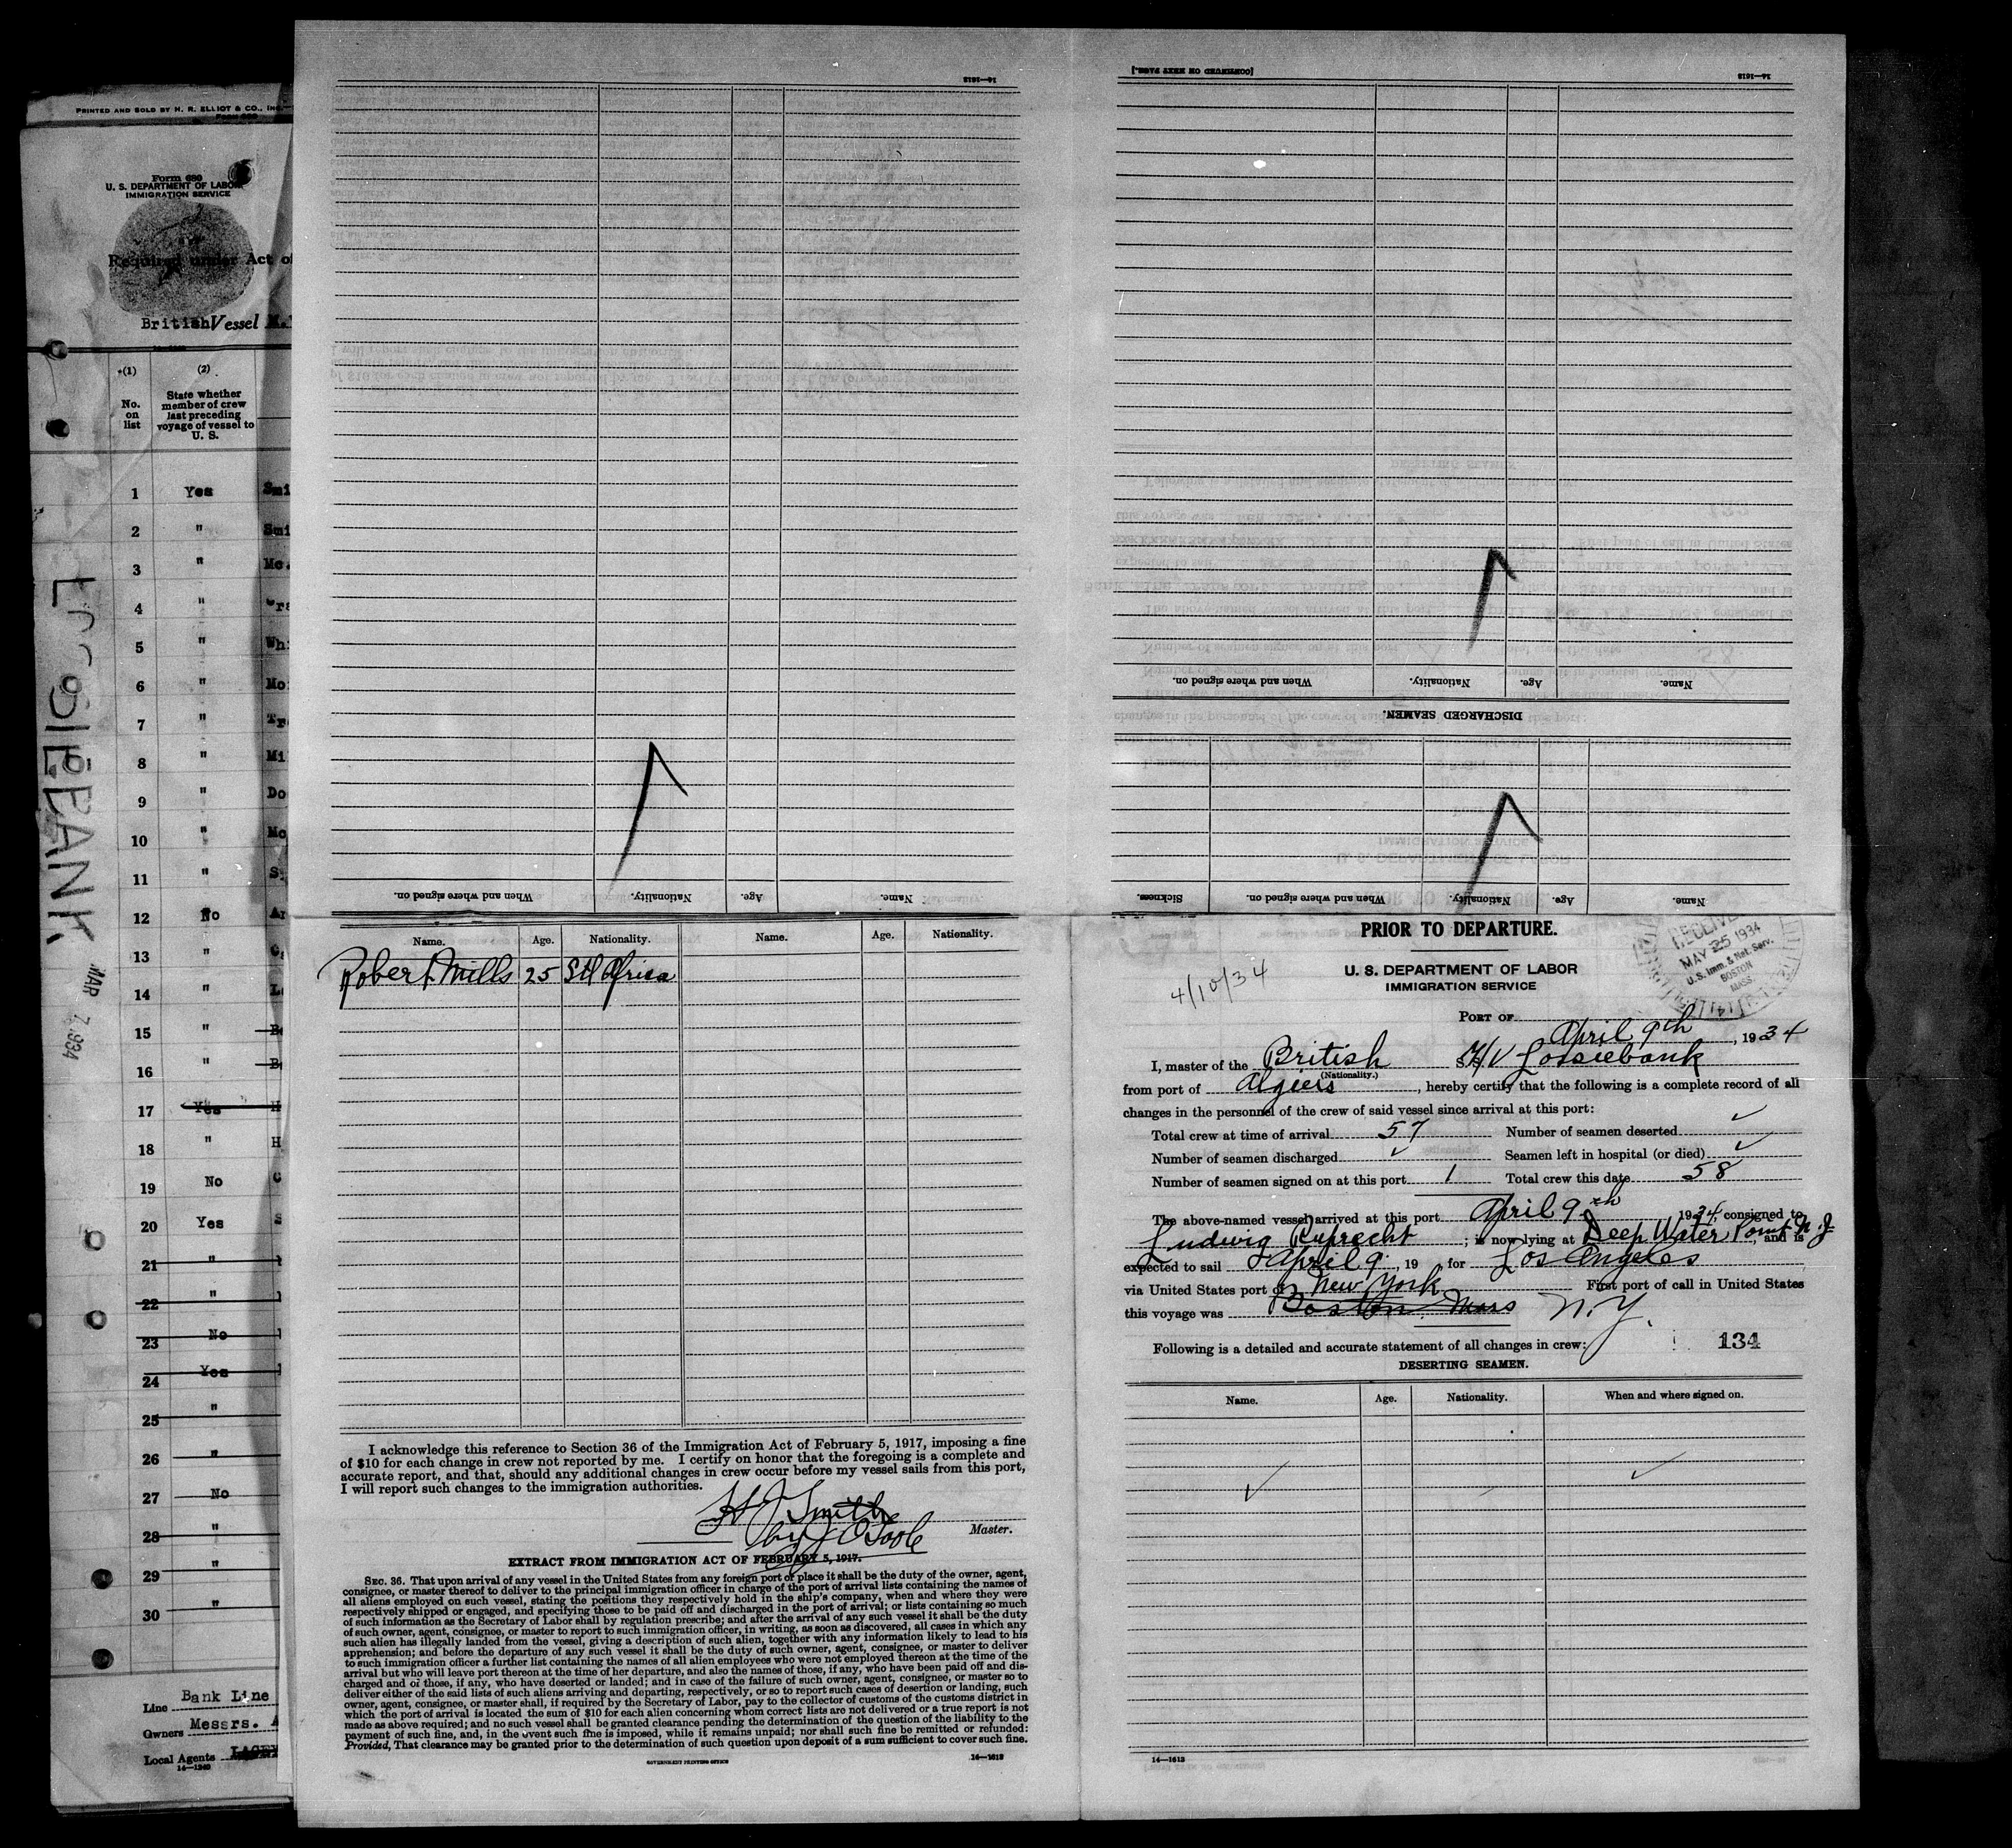 PRINTED AND SOLD BY H. R. ELLIOT & CO., INC.
Form 680
U. S. DEPARTMENT OF LABOR
IMMIGRATION SERVICE
Required under Act of
British Vessel
(1)
(2)
No. on list
State whether member of crew last preceding voyage of vessel to U. S.
1 Yes Smi
2 " Smi
3 " Mc.
4 "
5 " Whi
6 " Mo
7 " Tr
8 " Mi
9 " Do
10 " Mo
11 "
12 No
13 "
14 "
15 "
16 "
17 Yes
18 " H
19 No
20 Yes
21 "
22 "
23 No
24 Yes
25 "
26 "
27 No
28 "
29 "
30 "
MAR 7 1934
Line Bank Line
Owners Messrs.
Local Agents
14—1240
14—1613
Name. Age. Nationality. When and where signed on.
[CONTINUED ON NEXT PAGE.]
14—1613
Name. Age. Nationality. When and where signed on.
DISCHARGED SEAMEN.
Name. Age. Nationality. When and where signed on. Sickness.
Name. Age. Nationality. Name. Age. Nationality.
Robert Mills 25 Sth Africa
I acknowledge this reference to Section 36 of the Immigration Act of February 5, 1917, imposing a fine
of $10 for each change in crew not reported by me. I certify on honor that the foregoing is a complete and
accurate report, and that, should any additional changes in crew occur before my vessel sails from this port,
I will report such changes to the immigration authorities.
H J Smith
by J O'Toole Master.
EXTRACT FROM IMMIGRATION ACT OF FEBRUARY 5, 1917.
SEC. 36. That upon arrival of any vessel in the United States from any foreign port or place it shall be the duty of the owner, agent,
consignee, or master thereof to deliver to the principal immigration officer in charge of the port of arrival lists containing the names of
all aliens employed on such vessel, stating the positions they respectively hold in the ship's company, when and where they were
respectively shipped or engaged, and specifying those to be paid off and discharged in the port of arrival; or lists containing so much
of such information as the Secretary of Labor shall by regulation prescribe; and after the arrival of any such vessel it shall be the duty
of such owner, agent, consignee, or master to report to such immigration officer, in writing, as soon as discovered, all cases in which any
such alien has illegally landed from the vessel, giving a description of such alien, together with any information likely to lead to his
apprehension; and before the departure of any such vessel it shall be the duty of such owner, agent, consignee, or master to deliver
to such immigration officer a further list containing the names of all alien employees who were not employed thereon at the time of the
arrival but who will leave port thereon at the time of her departure, and also the names of those, if any, who have been paid off and dis-
charged and of those, if any, who have deserted or landed; and in case of the failure of such owner, agent, consignee, or master so to
deliver either of the said lists of such aliens arriving and departing, respectively, or so to report such cases of desertion or landing, such
owner, agent, consignee, or master shall, if required by the Secretary of Labor, pay to the collector of customs of the customs district in
which the port of arrival is located the sum of $10 for each alien concerning whom correct lists are not delivered or a true report is not
made as above required; and no such vessel shall be granted clearance pending the determination of the question of the liability to the
payment of such fine, and, in the event such fine is imposed, while it remains unpaid; nor shall such fine be remitted or refunded:
Provided, That clearance may be granted prior to the determination of such question upon deposit of a sum sufficient to cover such fine.
GOVERNMENT PRINTING OFFICE 14—1613
PRIOR TO DEPARTURE.
U. S. DEPARTMENT OF LABOR
IMMIGRATION SERVICE
4/10/34
RECEIVED
MAY 25 1934
U.S. Imm. & Nat. Serv.
BOSTON
MASS
PORT OF
April 9th, 1934
I, master of the British M/V Lossiebank
(Nationality.)
from port of Algiers, hereby certify that the following is a complete record of all
changes in the personnel of the crew of said vessel since arrival at this port:
Total crew at time of arrival 57 Number of seamen deserted ✓
Number of seamen discharged ✓ Seamen left in hospital (or died) ✓
Number of seamen signed on at this port 1 Total crew this date 58
The above-named vessel arrived at this port April 9th 1934, consigned to
Ludwig Ruprecht; is now lying at Deep Water Point N.J, and is
expected to sail April 9, 19 , for Los Angeles
via United States port of New York First port of call in United States
this voyage was Boston Mass N.Y.
Following is a detailed and accurate statement of all changes in crew: 134
DESERTING SEAMEN.
Name. Age. Nationality. When and where signed on.
✓ ✓
14—1613